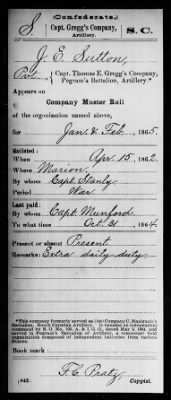 (Confederate.)
S Capt. Gregg's Company, S. C.
Artillery.
J. E. Sutton
Pvt., Capt. Thomas E. Gregg's Company,
Pegram's Battalion, Artillery.*
Appears on
Company Muster Roll
of the organization named above,
for Jan & Feb, 1865.
Enlisted:
When Apr. 15, 1862.
Where Marion
By whom Capt. Stanly
Period War
Last paid:
By whom Capt. Munford
To what time Oct. 31, 1864.
Present or absent Present
Remarks: Extra daily duty.
Book mark:
(642) F. C. Pratz
Copyist.